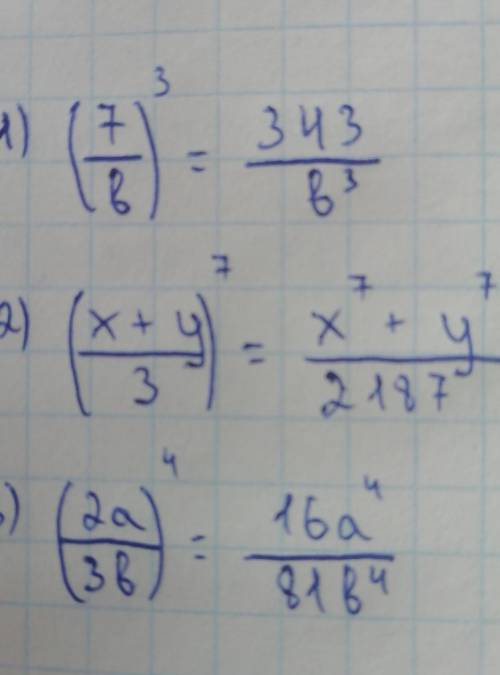 1) (7/в)³ = 343/в³
2) ((x + y)/3)⁷ = (x⁷ + y⁷)/2187
3) (2a/3в)⁴ = 16a⁴/81в⁴